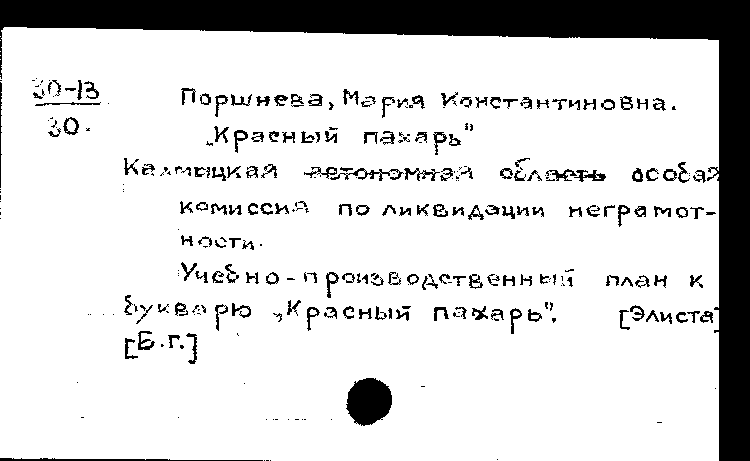 30-13
30.
Поршнева, Мария Константиновна.
„Красный пахарь"
Калмыцкая автономная область особая
комиссия по ликвидации неграмот-
ности.
Учебно-производственный план к
букварю „Красный пахарь". [Элиста]
[Б.г.]